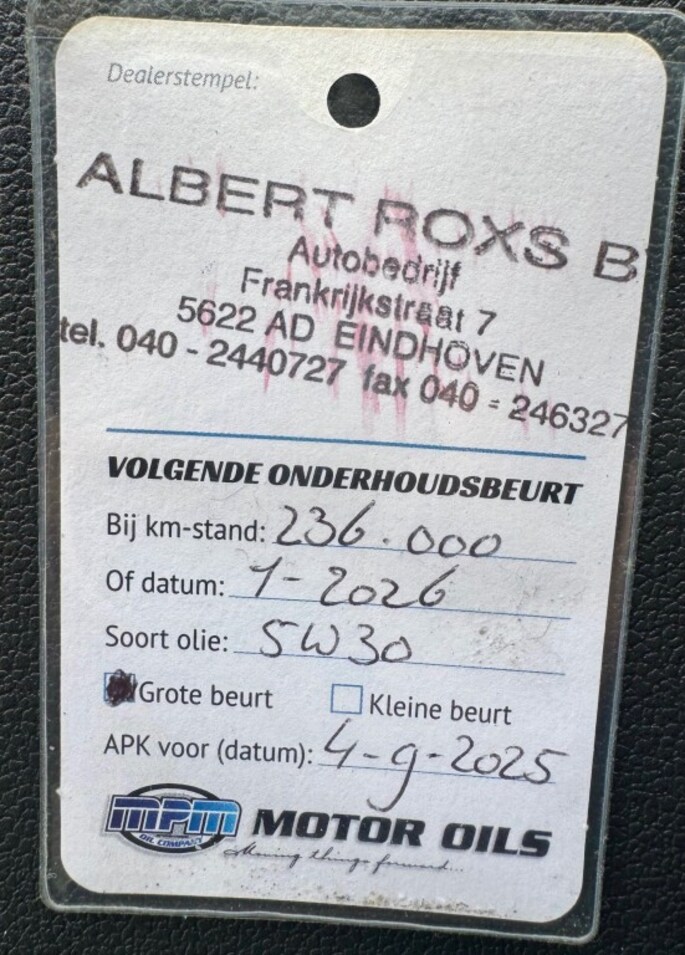 Dealerstempel:
ALBERT ROXS B
Autobedrijf
Frankrijkstraat 7
5622 AD EINDHOVEN
tel. 040 - 2440727 fax 040 - 246327
VOLGENDE ONDERHOUDSBEURT
Bij km-stand: 236.000
Of datum: 1-2026
Soort olie: 5W30
Grote beurt Kleine beurt
APK voor (datum): 4-9-2025
MPM
OIL COMPANY
MOTOR OILS
Moving things forward...